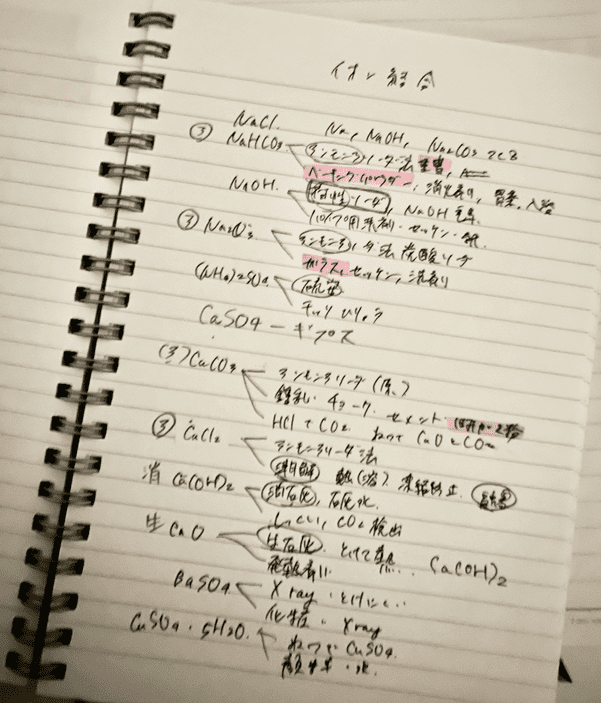 イオン結合
NaCl. Na, NaOH, Na2CO3 つくる
③ NaHCO3 アンモニアソーダ法 重曹,
ベーキングパウダー, 消火剤, 胃薬, 入浴
NaOH. 苛性ソーダ, NaOH
パイプ用 剤・セッケン・紙
③ Na2CO3 アンモニアソーダ法 炭酸ソーダ
ガラス, セッケン, 洗剤
(NH4)2SO4 硫安
チッソひりょう
CaSO4 ー ギプス
(3) CaCO3 アンモニアソーダ(原)
鍾乳・チョーク・セメント・
HCl で CO2 ねつで CaO と CO2
③ CaCl2 アンモニアソーダ法
潮解 凍結防止
消 Ca(OH)2 消石灰, 石灰水
しっくい, CO2 検出
生 CaO 生石灰. とけて熱... Ca(OH)2
発熱剤
BaSO4 X ray・とけにくい
化粧・X ray
CuSO4・5H2O. ねつで CuSO4.
顔料・水